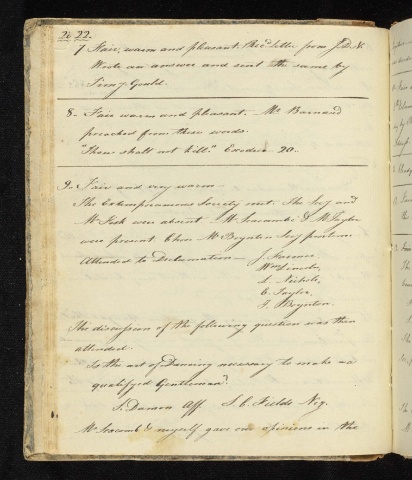 20 22.
7 Fair, warm and pleasant. Rec.d letter from J.D.N.
Wrote an answer and sent the same by
Timo.y Gould.
8 - Fair warm and pleasant. - Mr Barnard
preached from these words.
"Thou shalt not kill." Exodus 20.
9 - Fair and very warm -
The Extemporaneous Society met. The Secy and
Mr Fisk were absent - Mr Seacomb & Mr Taylor
were present
Mr Boynton Secy protem.
Attended to Declamation - J. Farmer
Wm
A. Nichols,
C. Taylor,
J. Boynton.
The discussion of the following question was then
attended.
Is the art of Dancing necessary to make a
qualifyed Gentleman?
S. Damon Aff. S. C. Fields Neg.
Mr Seacomb & myself gave our opinions in the